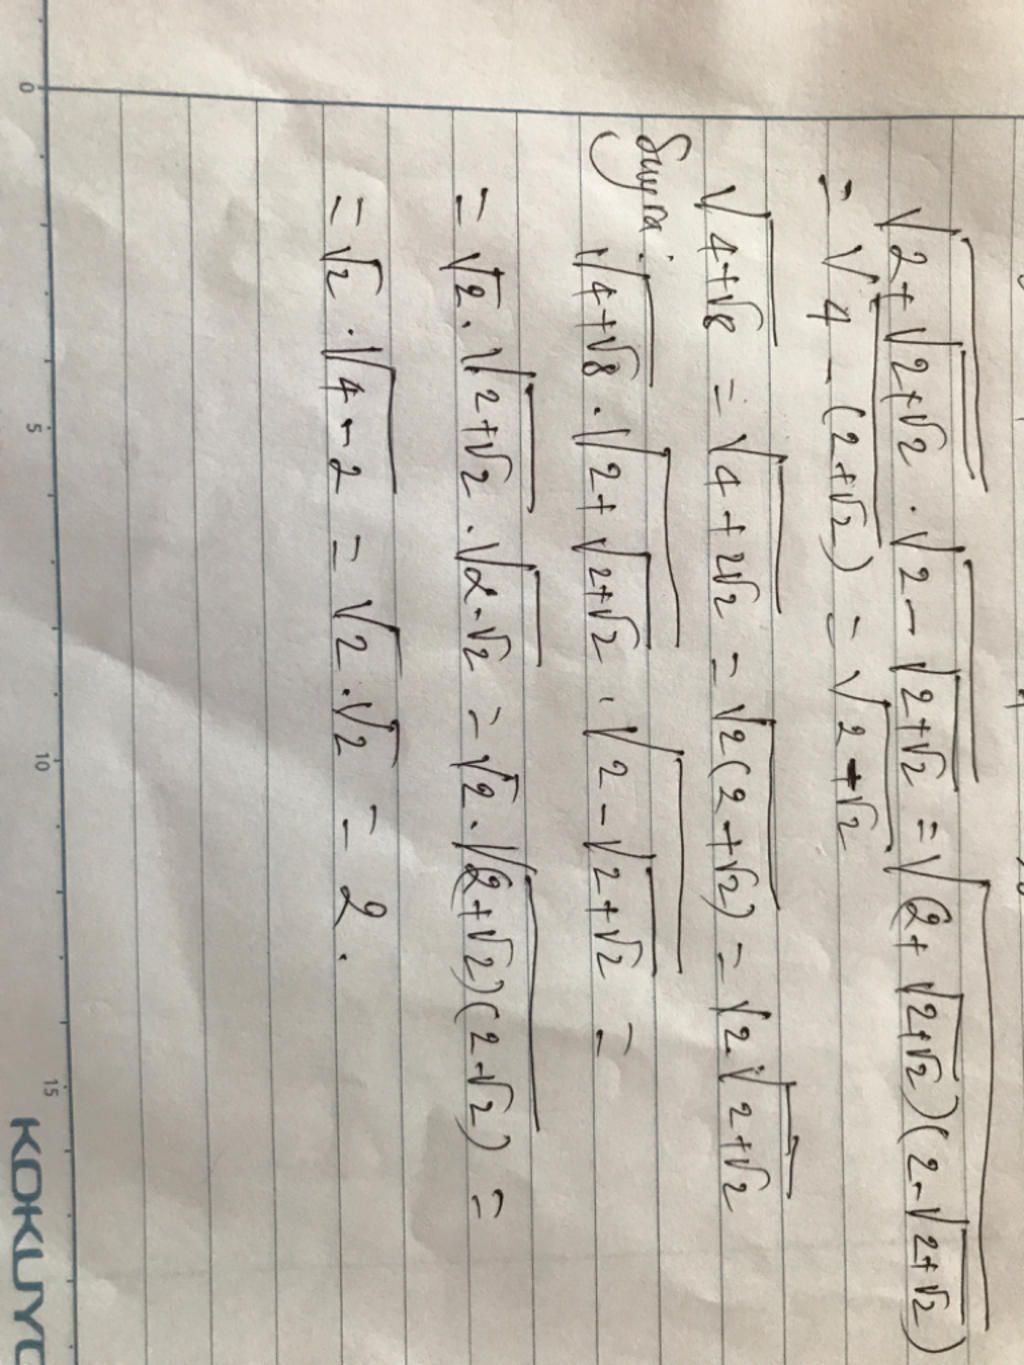 √(2+√(2+√2)) · √(2-√(2+√2)) = √((2+√(2+√2))(2-√(2+√2)))
= √(4-(2+√2)) = √(2-√2)
√(4+√8) = √(4+2√2) = √(2(2+√2)) = √2·√(2+√2)
√(4+√8) · √(2+√(2+√2)) · √(2-√(2+√2)) =
= √2 · √(2+√2) · √(2-√2) = √2 · √((2+√2)(2-√2)) =
= √2 · √(4-2) = √2 · √2 = 2.
0 5 10 15
KOKUYO